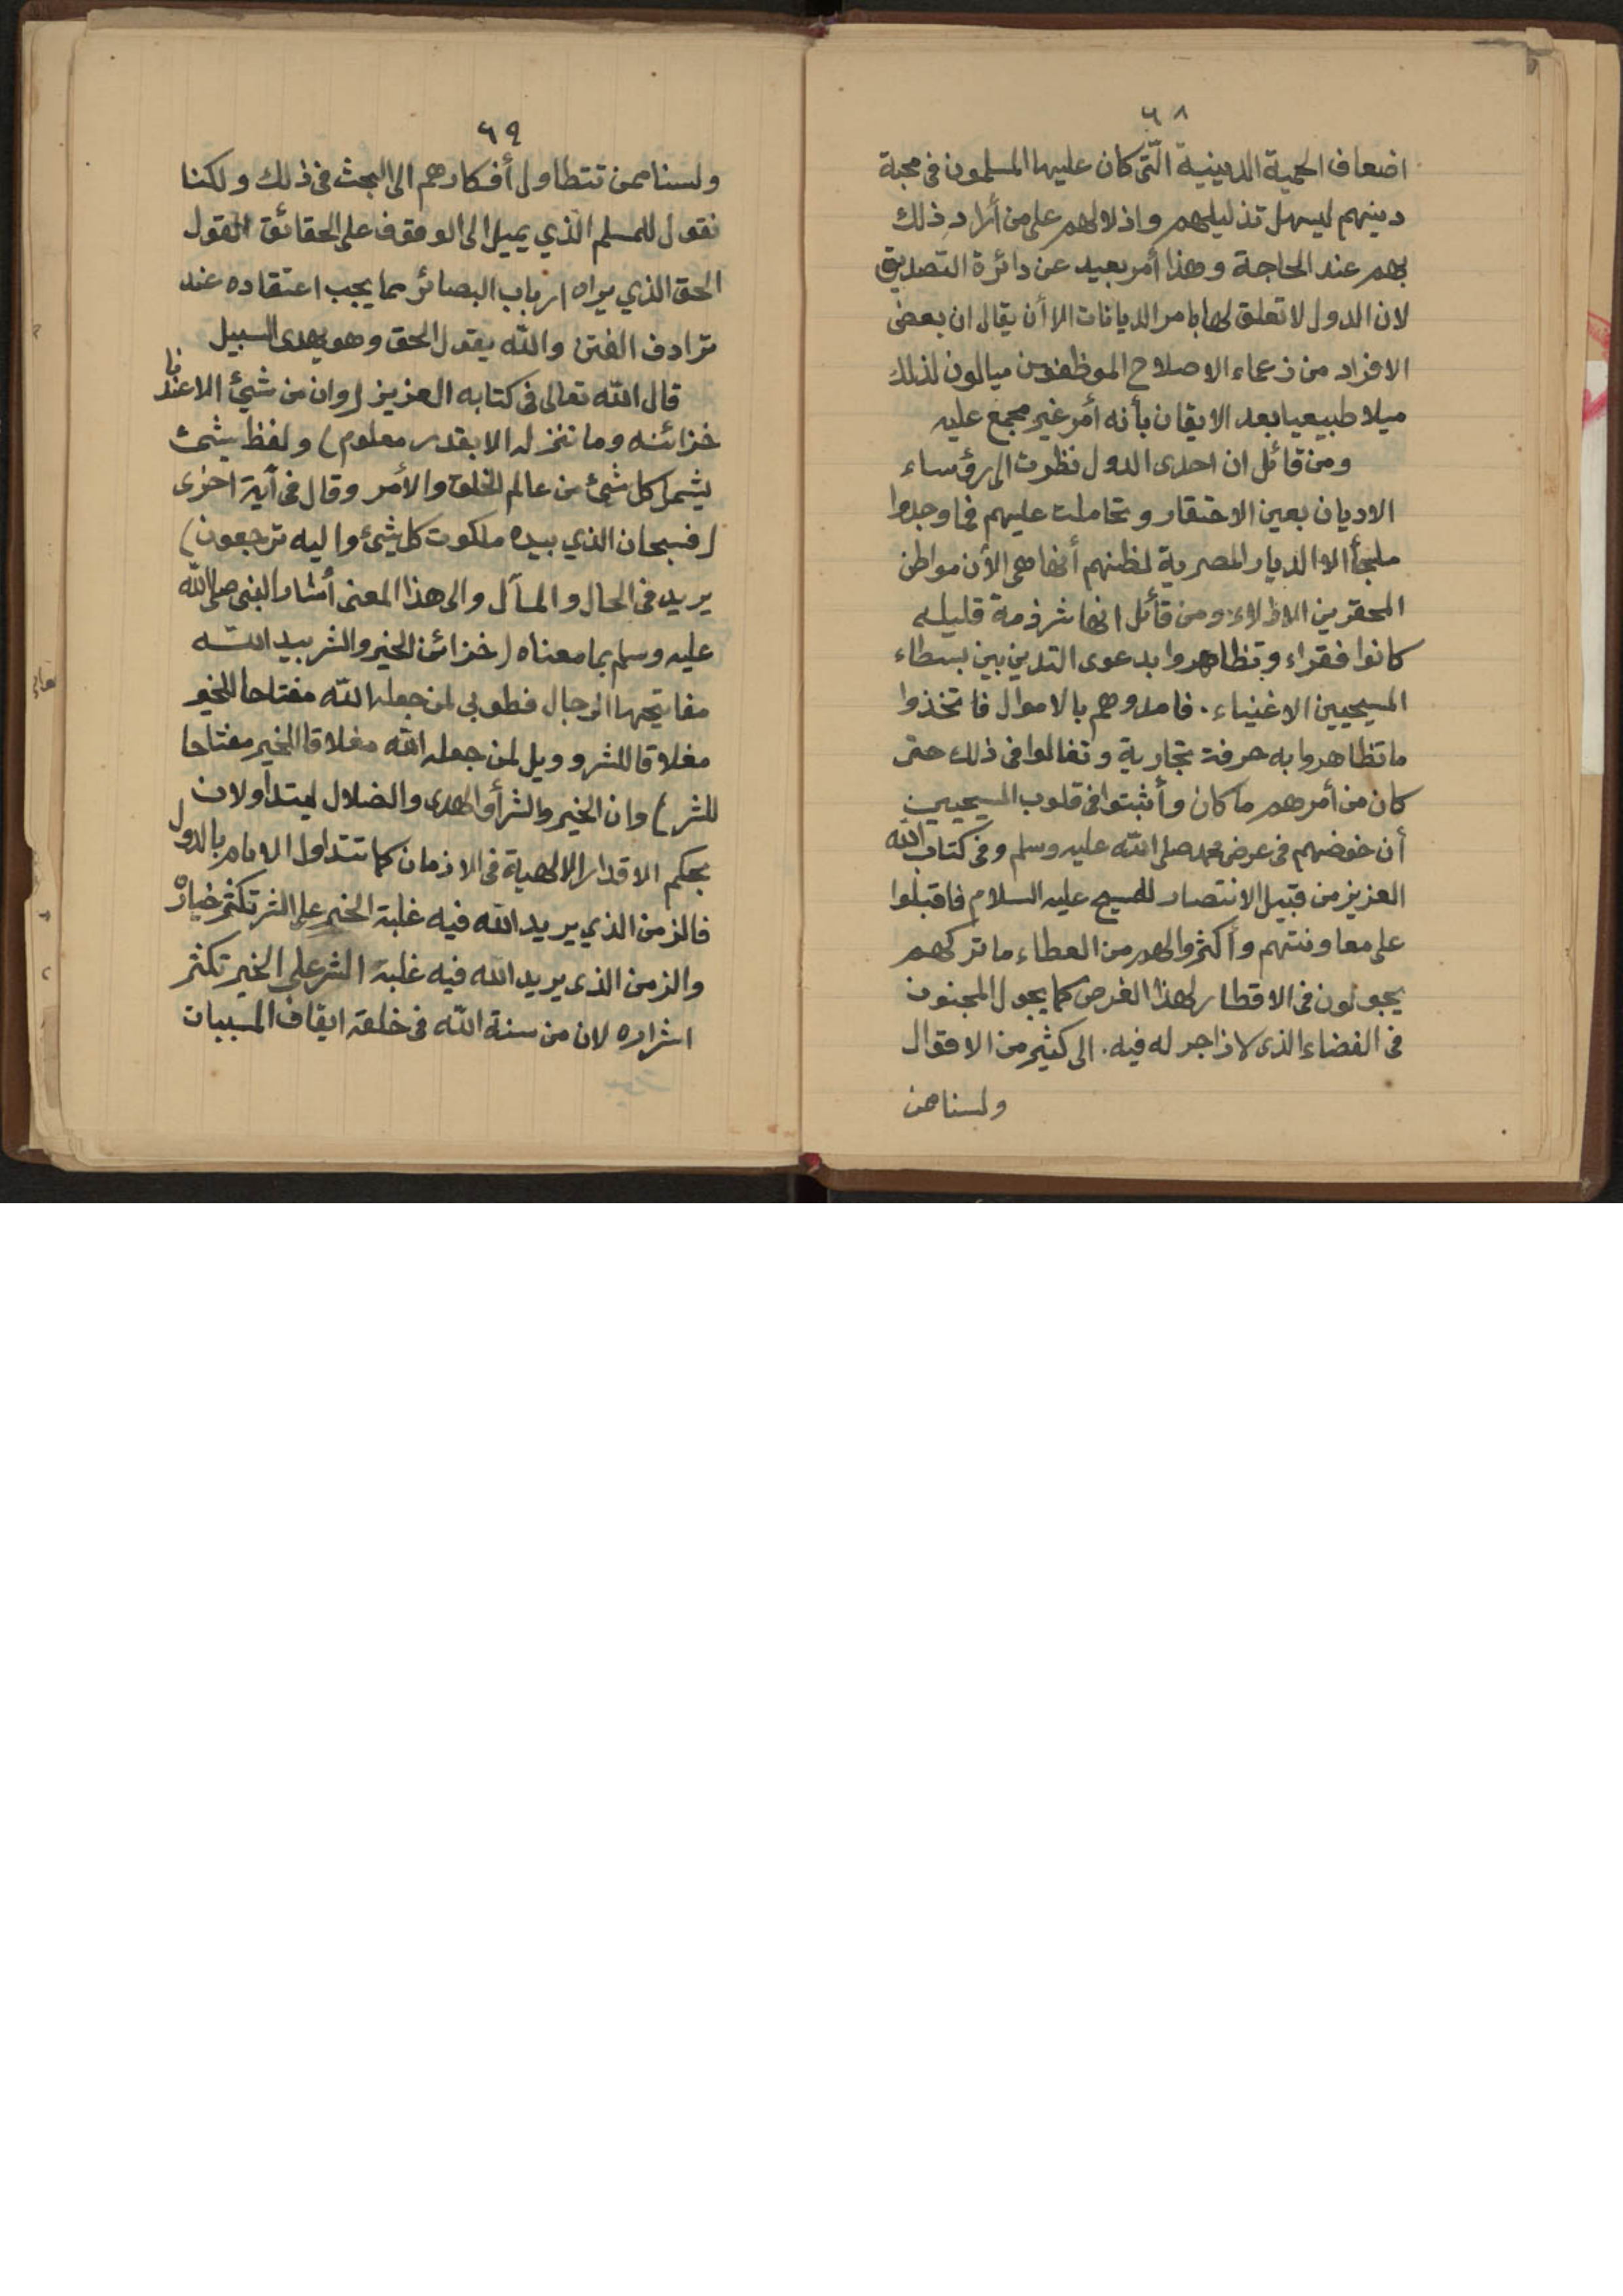 ٦٨
اضعاف الحمية الدينية الّتى كان عليها المسلمون فى محبة
دينهم ليسهل تذليلهم واذلالهم على من أراد ذلك
بهم عند الحاجة وهذا أمر بعيد عن دائرة التصديق
لان الدول لا تعلق لها بامر الديانات الا أن يقال ان بعض
الافراد من زعماء الاصلاح الموظفين ميالون لذلك
ميلا طبيعيا بعد الايقان بأنه أمر غير مجمع عليه
ومن قائل ان احدى الدول نظرت الى رؤساء
الاديان بعين الاحتقار وتحاملت عليهم فما وجدوا
ملجأ الا الديار المصرية لظنهم أنها هى الأن مواطن
المحقرين الاذلاء ومن قائل انها شرذمة قليله
كانوا فقراء وتظاهروا بدعوى التدين بين بسطاء
المسيحيين الاغنياء. فامدوهم بالاموال فاتخذوا
ما تظاهروا به حرفة تجارية وتغالوا فى ذلك حتى
كان من أمرهم ما كان وأثبتوا فى قلوب المسيحيين
أن خوضهم فى عرض محمد صلى الله عليه وسلم وفى كتاب الله
العزيز من قبيل الانتصار للمسيح عليه السلام فاقبلوا
على معاونتهم وأكثروا لهم من العطاء ما تركهم
يجولون فى الاقطار لهذا الغرض كما يجول المجنون
فى الفضاء الذى لا زاجر له فيه. الى كثير من الاقوال
ولسنا ممن
٦٩
ولسنا ممن تتطاول أفكارهم الى البحث فى ذلك ولكنا
نقول للمسلم الذي يميل الى الوقوف على الحقائق القول
الحق الذي يراه ارباب البصائر مما يجب اعتقاده عند
ترادف الفتن والله يقول الحق وهو يهدى السبيل
قال الله تعالى فى كتابه العزيز (وان من شيئ الا عندنا
خزائنه وما ننزله الا بقدر معلوم) ولفظ شئ
يشمل كل شئ من عالم الخلق والأمر وقال فى آية اخرى
(فسبحان الذي بيده ملكوت كل شئ واليه ترجعون)
يريد فى الحال والمآل والى هذا المعنى أشار النبى صلى الله
عليه وسلم بما معناه (خزائن الخير والشر بيد الله
مفاتيحها الرجال فطوبى لمن جعله الله مفتاحا للخير
مغلاقا للشر وويل لمن جعله الله مغلاقا للخير مفتاحا
للشر) وان الخير والشر أو الهدى والضلال ليتداولان
بحكم الاقدار الالهية فى الازمان كما تتداول الايام بالدول
فالزمن الذي يريد الله فيه غلبة الخير على الشر تكثر خياره
والزمن الذى يريد الله فيه غلبة الشر على الخير تكثر
اشراره لان من سنة الله فى خلقه ايقاف المسببات